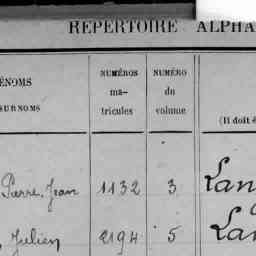 RÉPERTOIRE ALPHA
ÉNOMS
SURNOMS
NUMÉROS
ma-
tricules
NUMÉRO
du
volume
(Il doit ê
Pierre, Jean 1132 3 Lan
Julien 2194 5 Lan